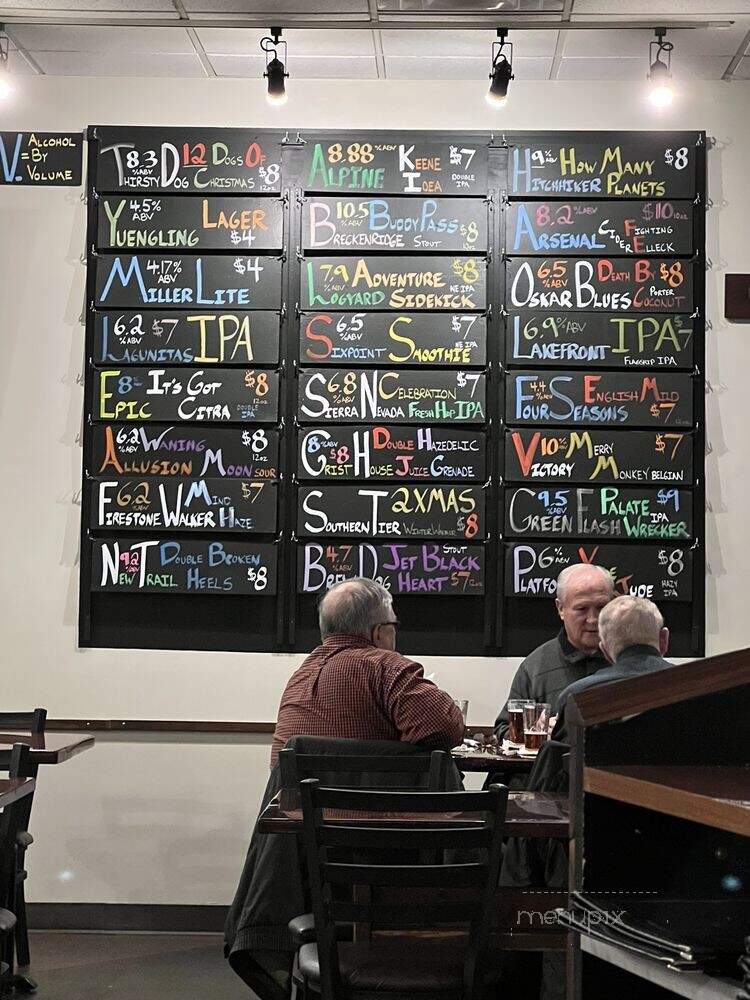 V. = ALCOHOL
BY
VOLUME
THIRSTY DOG 8.3 %ABV 12 DOGS OF CHRISTMAS $8 12oz
YUENGLING 4.5% ABV LAGER $4
MILLER LITE 4.17% ABV $4
LAGUNITAS 6.2 %ABV $7 IPA
EPIC 8% IT'S GOT CITRA DOUBLE IPA $8 12oz
ALLUSION 6.2 %ABV WANING MOON SOUR $8
FIRESTONE WALKER 6.2 MIND HAZE $7
NEW TRAIL 9.2 %ABV DOUBLE BROKEN HEELS $8
ALPINE 8.88 %ABV KEENE IDEA $7 DOUBLE IPA
BRECKENRIDGE 10.5 %ABV BUDDY PASS STOUT $8
LOGYARD 7.9 %ABV ADVENTURE SIDEKICK $8 NE IPA
SIXPOINT 6.5 %ABV SMOOTHIE $7 NE IPA
SIERRA NEVADA 6.8 %ABV CELEBRATION FRESH HOP IPA $7
GRIST HOUSE 8% ABV $8 DOUBLE HAZEDELIC JUICE GRENADE
SOUTHERN TIER 2XMAS WINTER WARMER $8
4.7 %ABV JET BLACK HEART STOUT $7 12oz
HITCHHIKER 9% ABV HOW MANY PLANETS $8
ARSENAL 8.2 %ABV CIDER FIGHTING ELLECK $10 10oz
OSKAR BLUES 6.5 %ABV DEATH BY COCONUT PORTER $8
LAKEFRONT 6.9% ABV IPA $7 FLAGSHIP IPA
FOUR SEASONS 4.4 %ABV ENGLISH MILD $7
VICTORY 10% ABV MERRY MONKEY BELGIAN $7
GREEN FLASH 9.5 %ABV PALATE WRECKER IPA $9
6% ABV $8 HAZY IPA
menupix